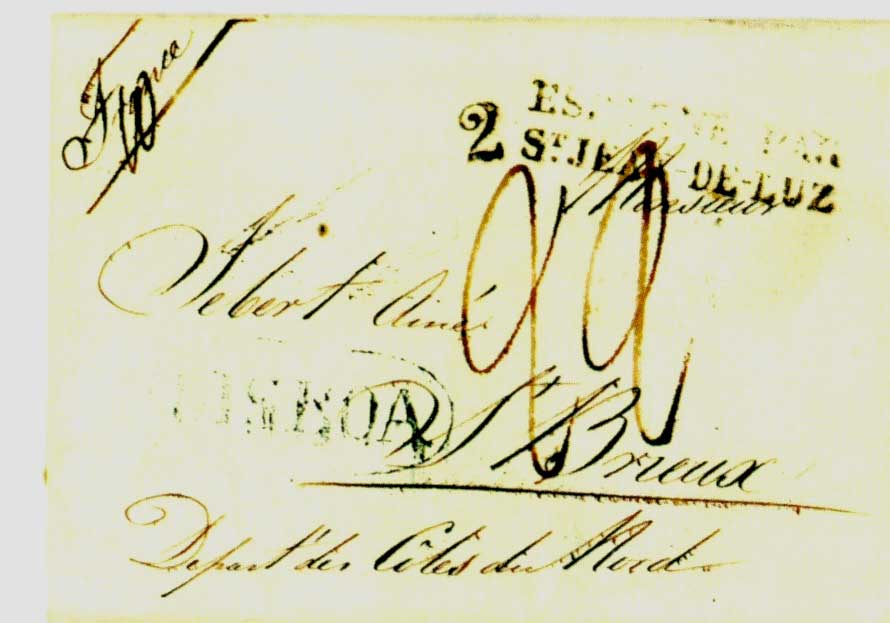 France
10
ES PAR
2 ST JEAN-DE-LUZ
Monsieur
Sebert ainé
LISBOA
St Brieux
Depart.t des Côtes du Nord